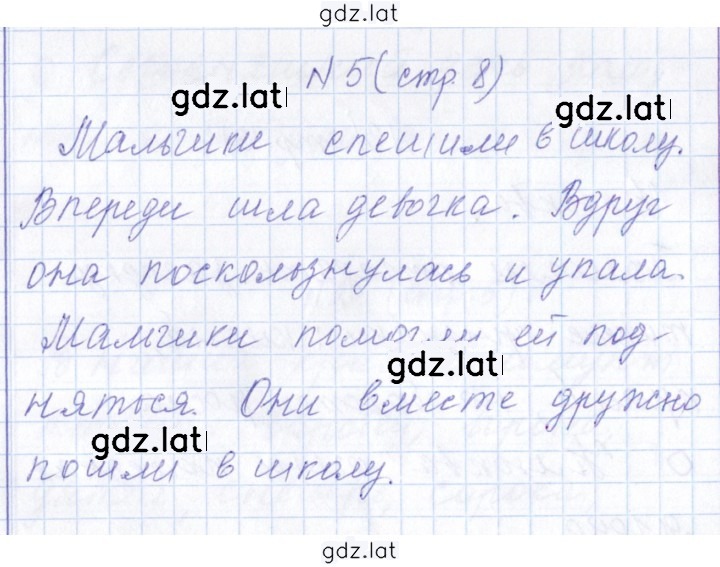 gdz.lat
N 5 (стр. 8)
gdz.lat
gdz.lat
Мальчики спешили в школу.
Впереди шла девочка. Вдруг
она поскользнулась и упала.
Мальчики помогли ей под-
gdz.lat
няться. Они вместе дружно
gdz.lat
пошли в школу.
gdz.lat